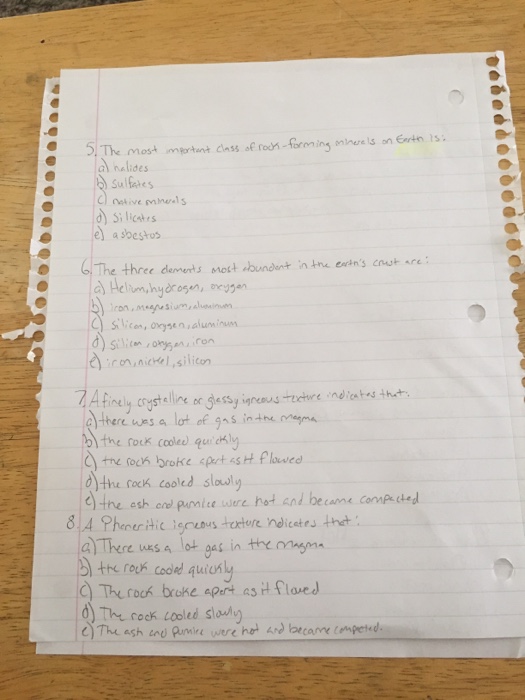 5. The most important class of rock-forming minerals on Earth is:
a) halides
b) Sulfates
c) native minerals
d) Silicates
e) asbestos
6. The three elements most abundant in the earth's crust are:
a) Helium, hydrogen, oxygen
b) iron, magnesium, aluminum
c) silicon, oxygen, aluminum
d) silicon, oxygen, iron
e) iron, nickel, silicon
7. A finely crystalline or glassy igneous texture indicates that:
a) there was a lot of gas in the magma
b) the rock cooled quickly
c) the rock broke apart as it flowed
d) the rock cooled slowly
e) the ash and pumice were hot and became compacted
8. A Phaneritic igneous texture indicates that:
a) There was a lot gas in the magma
b) the rock cooled quickly
c) The rock broke apart as it flowed
d) The rock cooled slowly
e) The ash and pumice were hot and became compacted.